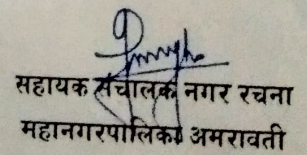 सहायक संचालक नगर रचना
महानगरपालिका अमरावती